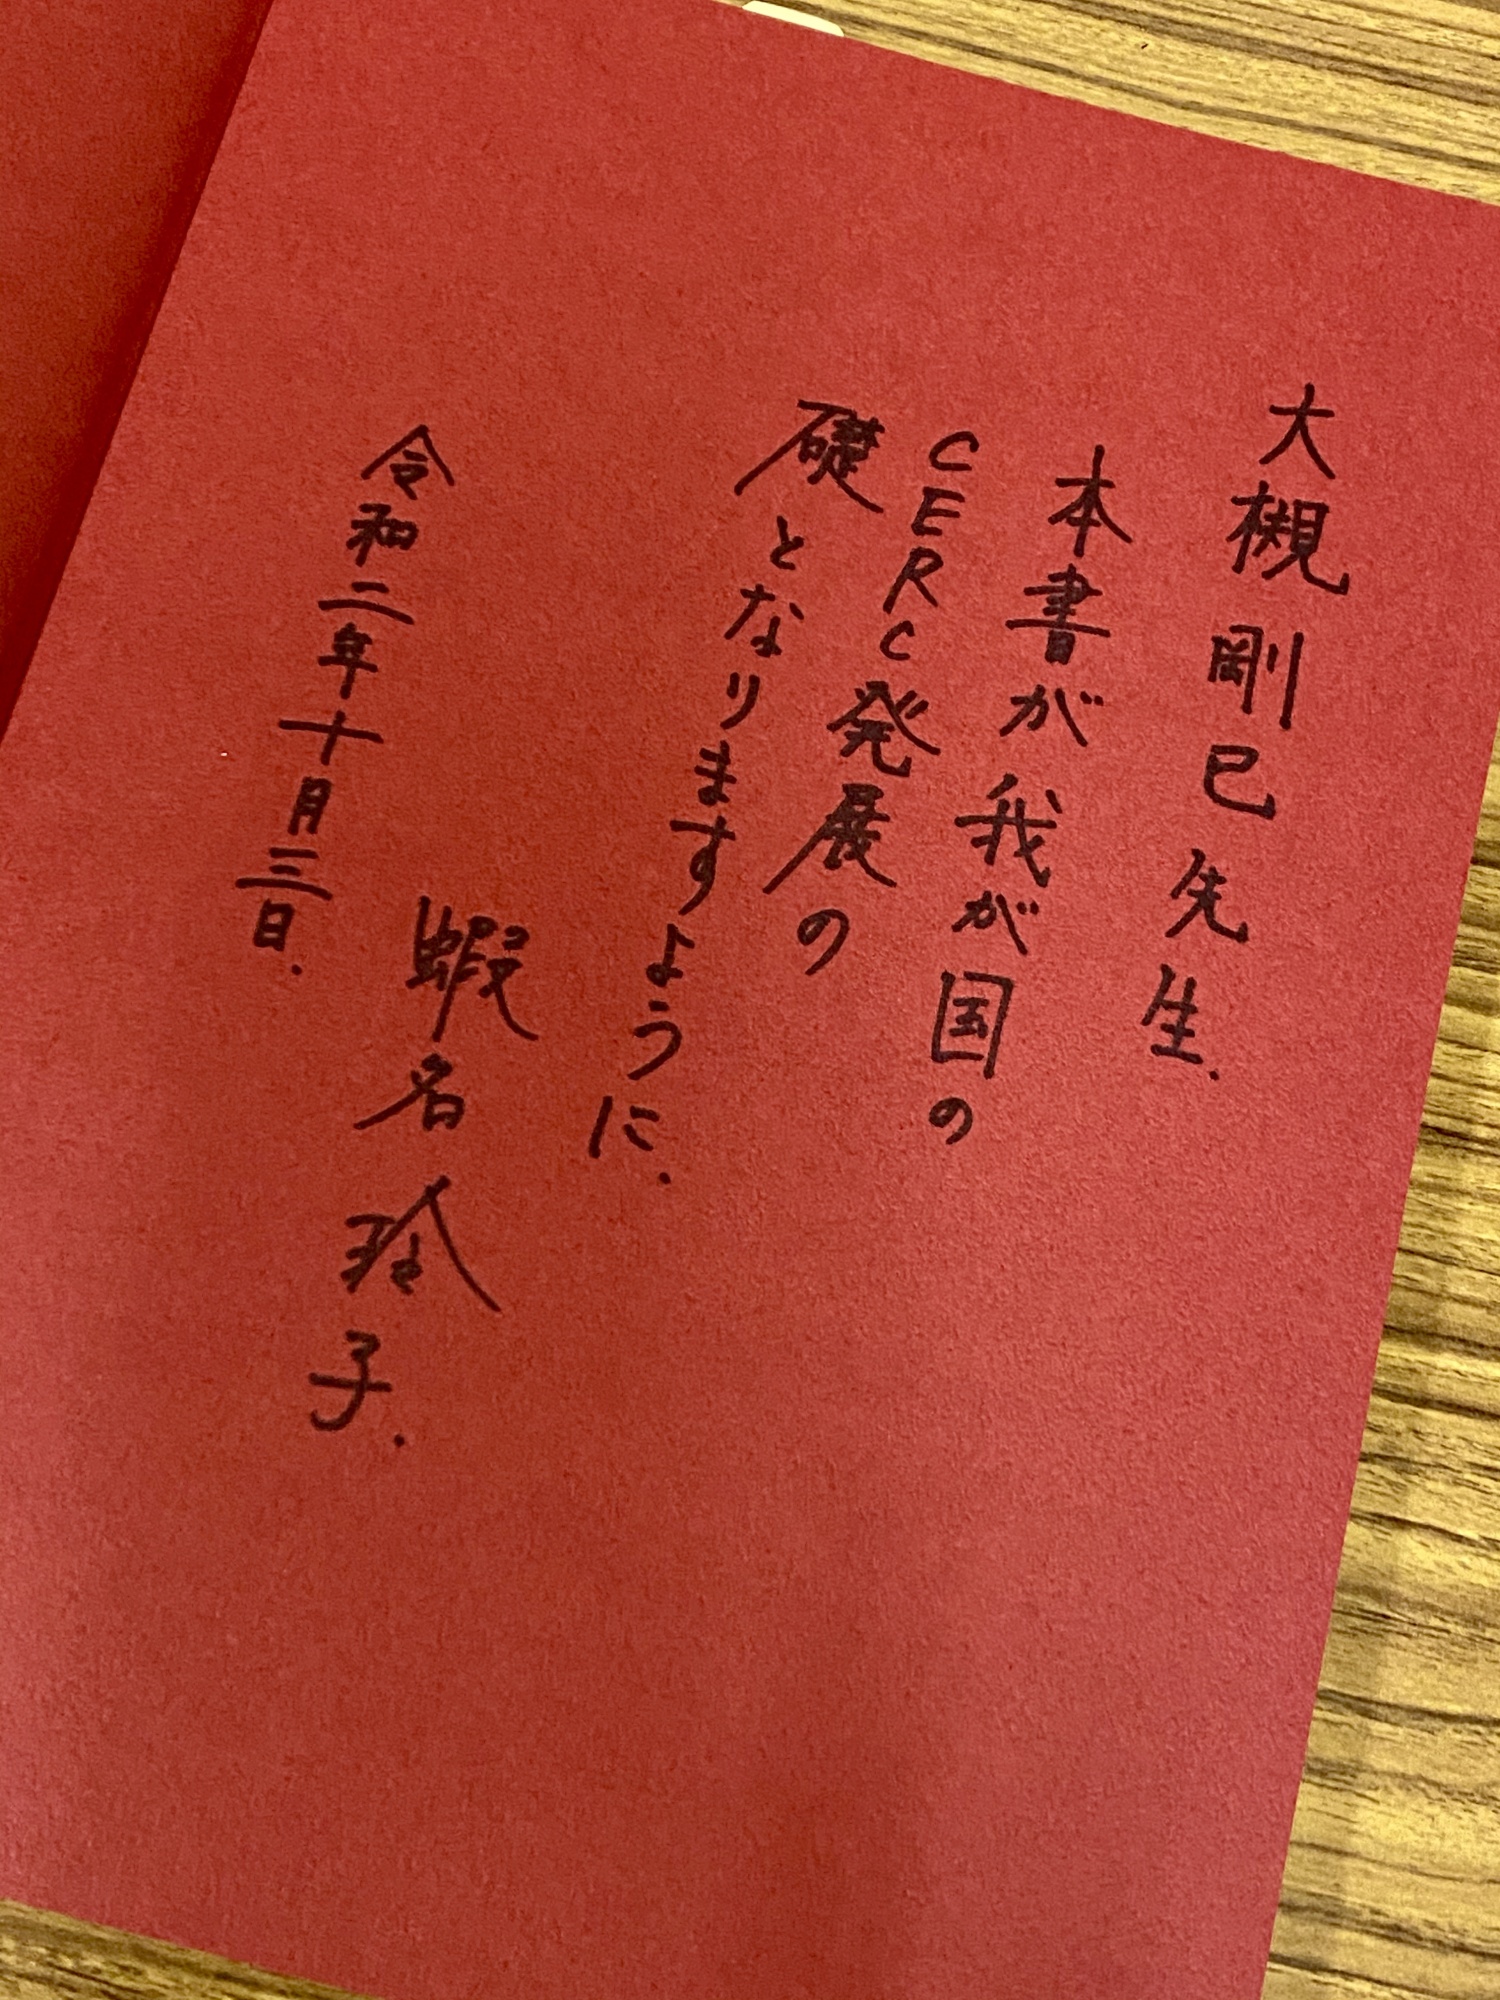 大槻剛已先生.
本書が我が国の
CERC発展の
礎となりますように.
令和二年十月三日.
蝦名玲子.